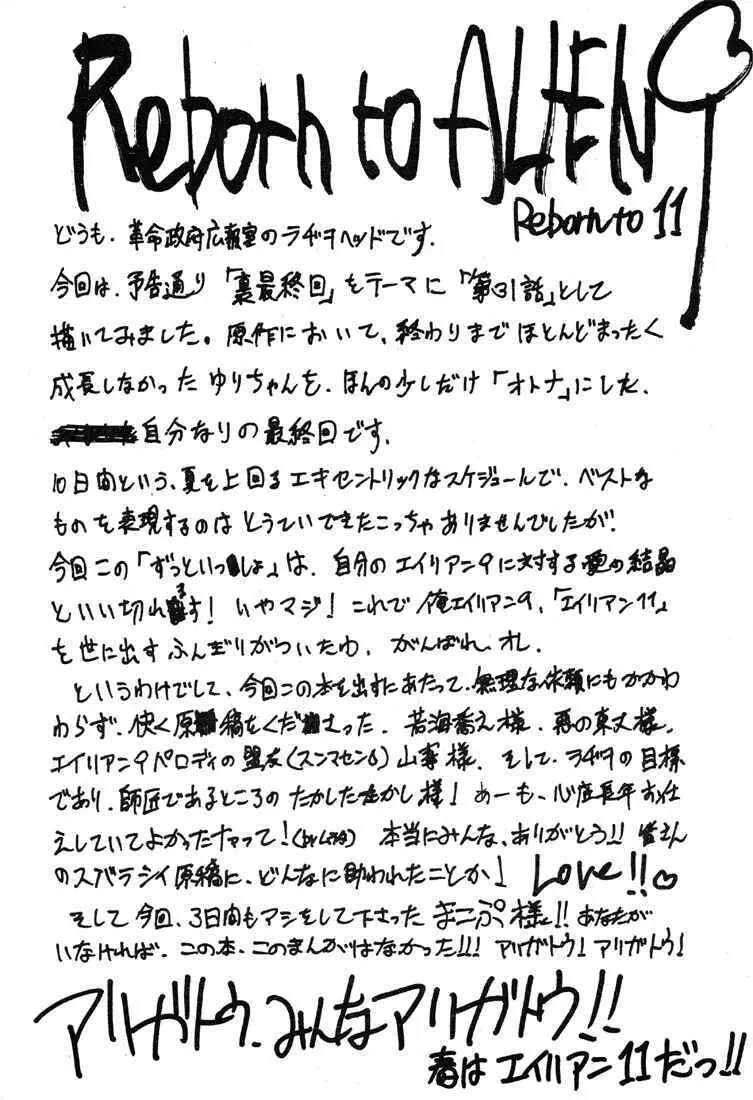 Reborn to ALIEN9
Reborn to 11
どうも、革命政府広報室のラヂヲヘッドです。
今回は、予告通り「裏最終回」をテーマに「第31話」として
描いてみました。原作において、終わりまでほとんどまったく
成長しなかったゆりちゃんを、ほんの少しだけ「オトナ」にした、
自分なりの最終回です。
10日間という、夏を上回るエキセントリックなスケジュールで、ベストな
ものを表現するのはとうていできたこっちゃありませんでしたが、
今回この「ずっといっしょ」は、自分のエイリアン9に対する愛の結晶
といい切れます!いやマジ!これで俺エイリアン9、「エイリアン11」
を世に出すふんぎりがついたわ、がんばれ、オレ。
というわけでして、今回この本を出すにあたって、無理な依頼にもかかわ
わらず、快く原稿をくださった、若海喬え様、悪の東丈様、
エイリアン9パロディの盟友(スンマセン6)山事様、そして、ラヂヲの目標
であり、師匠であるところのたかしたたかし様!あーも、心底長年お仕
えしていてよかったナァって! 本当にみんな、ありがとう!!皆さん
のスバラシイ原稿に、どんなに助われたことか! Love!!♡
そして今回、3日間もアシをして下さったまこぷ様!!あなたが
いなければ、この本、このまんがはなかった!!!アリガトウ!アリガトウ!
アリガトウ、みんなアリガトウ!!
春はエイリアン11だっ!!